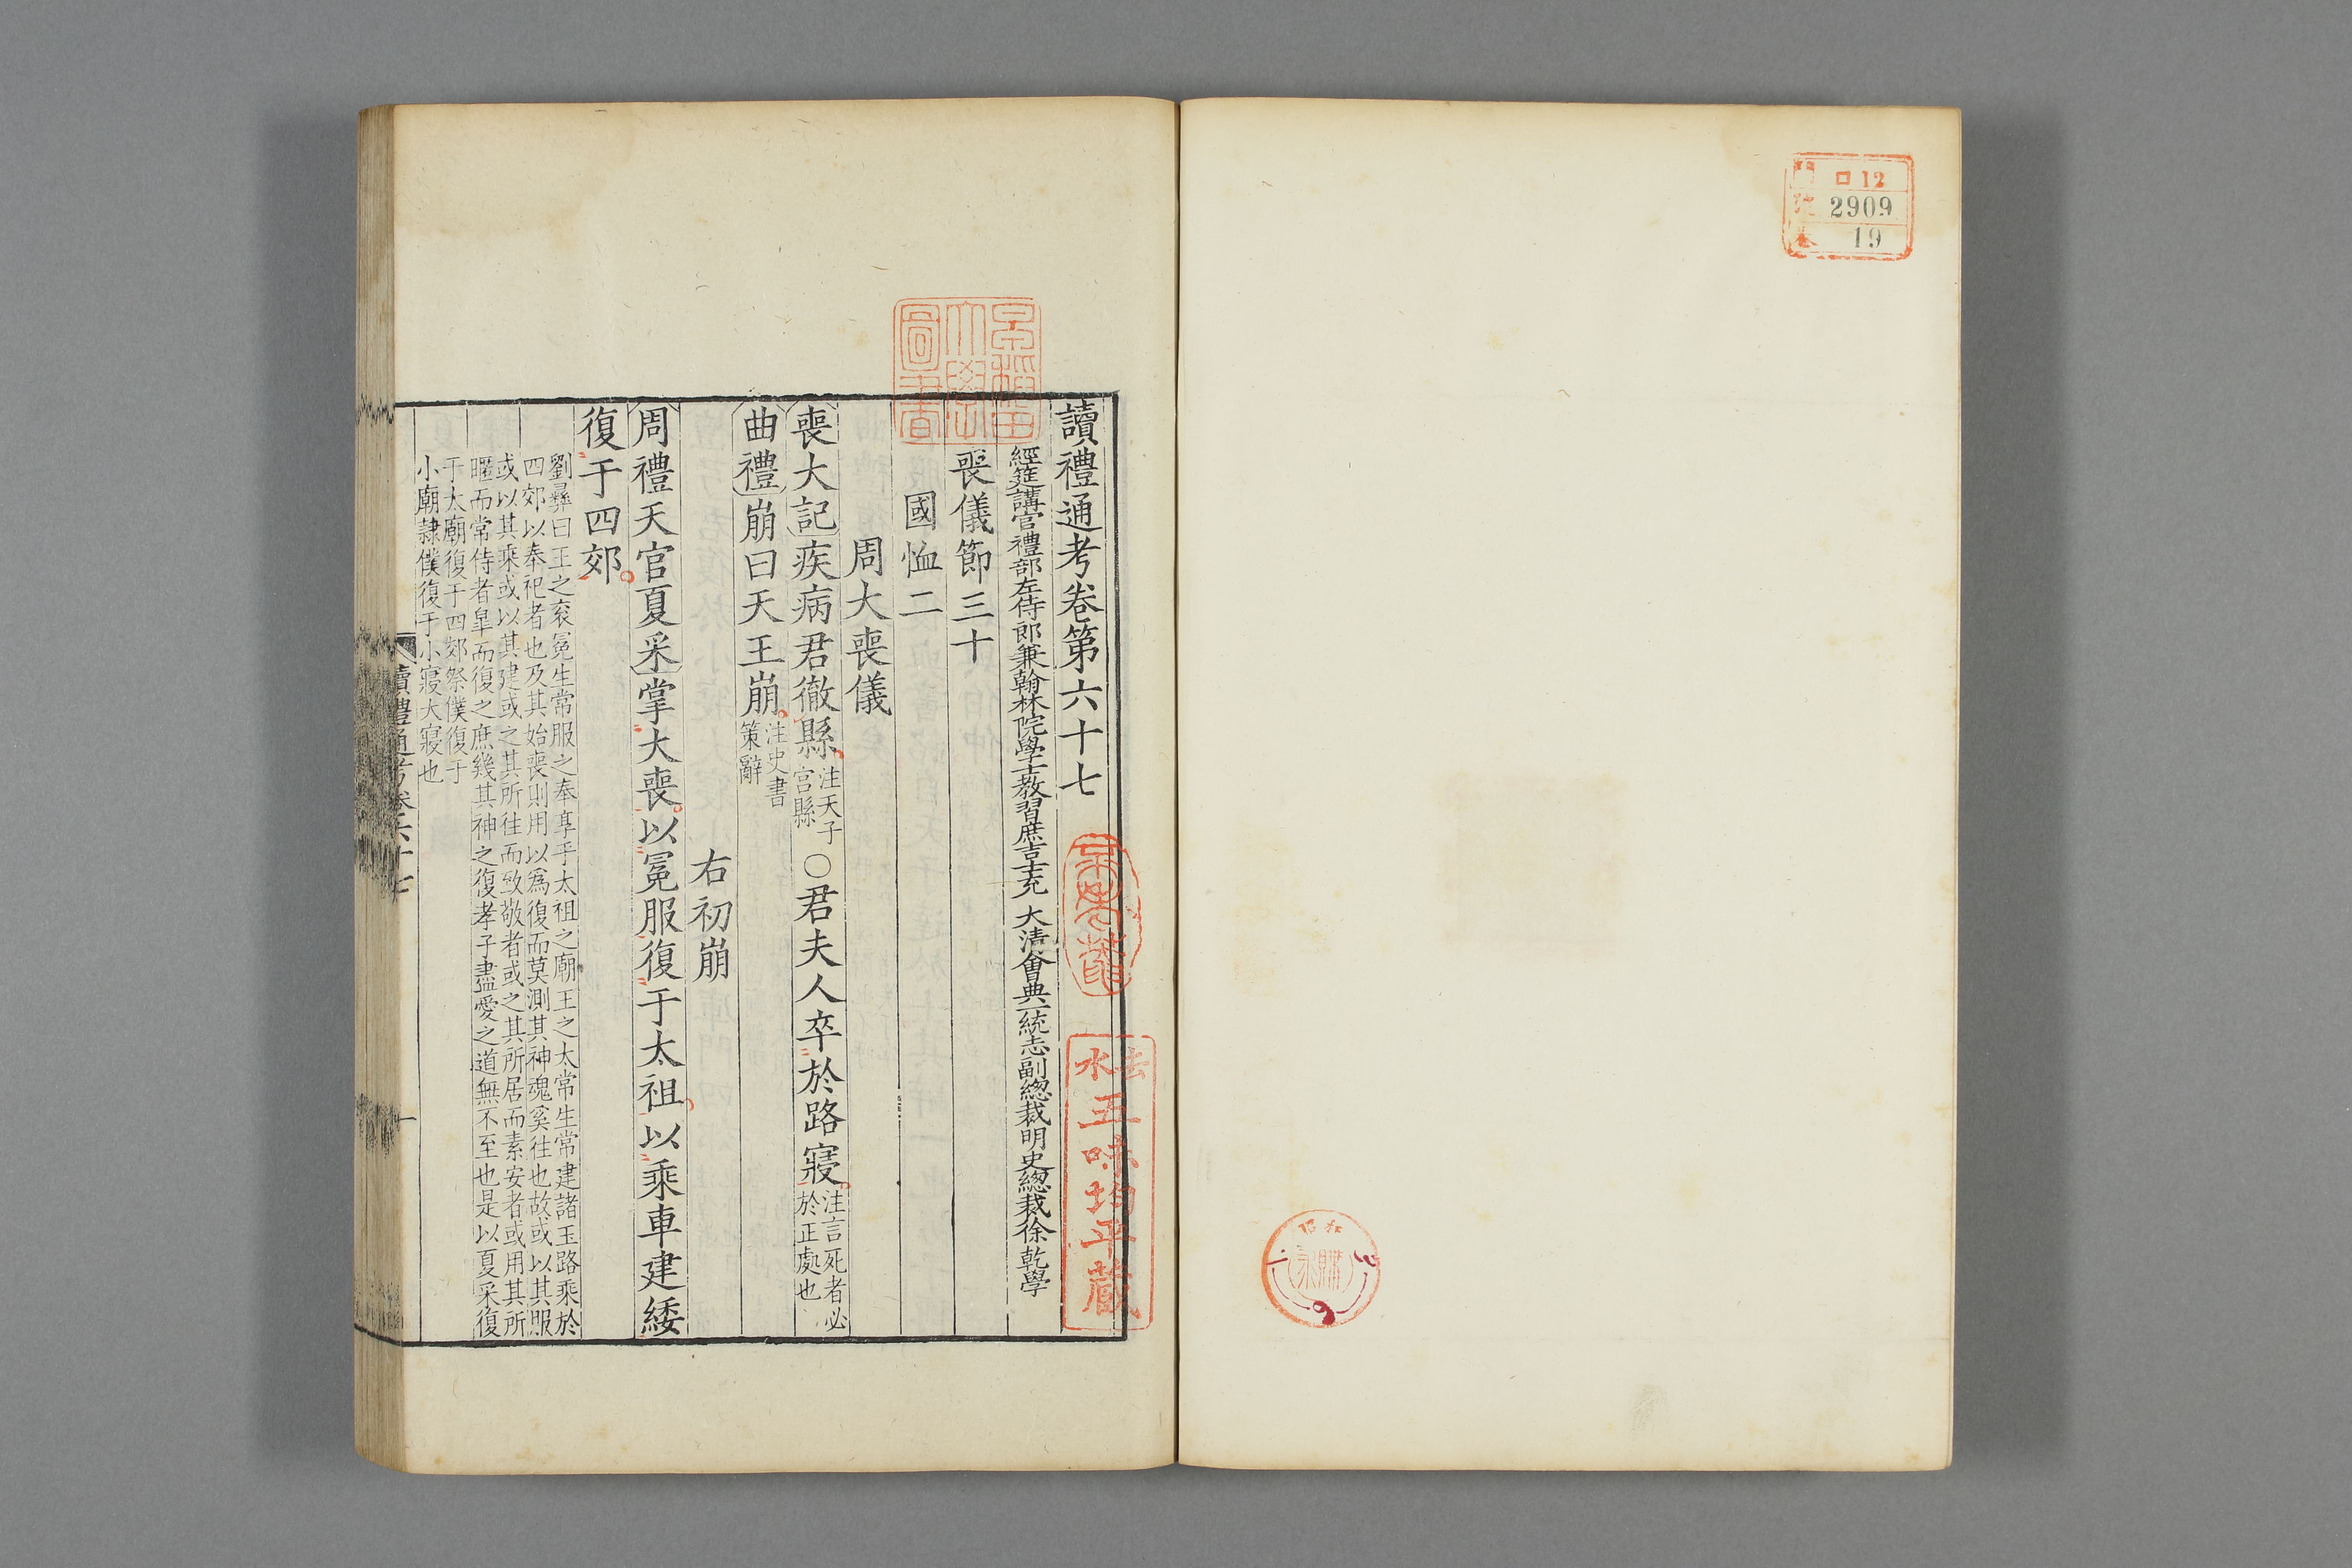 ロ12
2909
19
讀禮通考卷第六十七
經筵講官禮部左侍郎兼翰林院學士教習庶吉士充 大清會典一統志副總裁明史總裁徐乾學
喪儀節三十
國恤二
周大喪儀
喪大記疾病君徹縣注天子宮縣○君夫人卒於路寢注言死者必於正處也
曲禮崩曰天王崩注史書策辭
右初崩
周禮天官夏采掌大喪以冕服復于太祖以乘車建綏
復于四郊
劉彝曰王之衮冕生常服之奉享乎太祖之廟王之太常生常建諸玉路乘於
四郊以奉祀者也及其始喪則用以爲復而莫測其神魂奚往也故或以其服
或以其乘或以其建或之其所往而致敬者或之其所居而素安者或用其所
暱而常侍者臯而復之庶幾其神之復孝子盡愛之道無不至也是以夏采復
于太廟復于四郊祭僕復于
小廟隸僕復于小寢大寢也
讀禮通考卷六十七
一
早稻田大學圖書
水
五味均平藏
購求
9